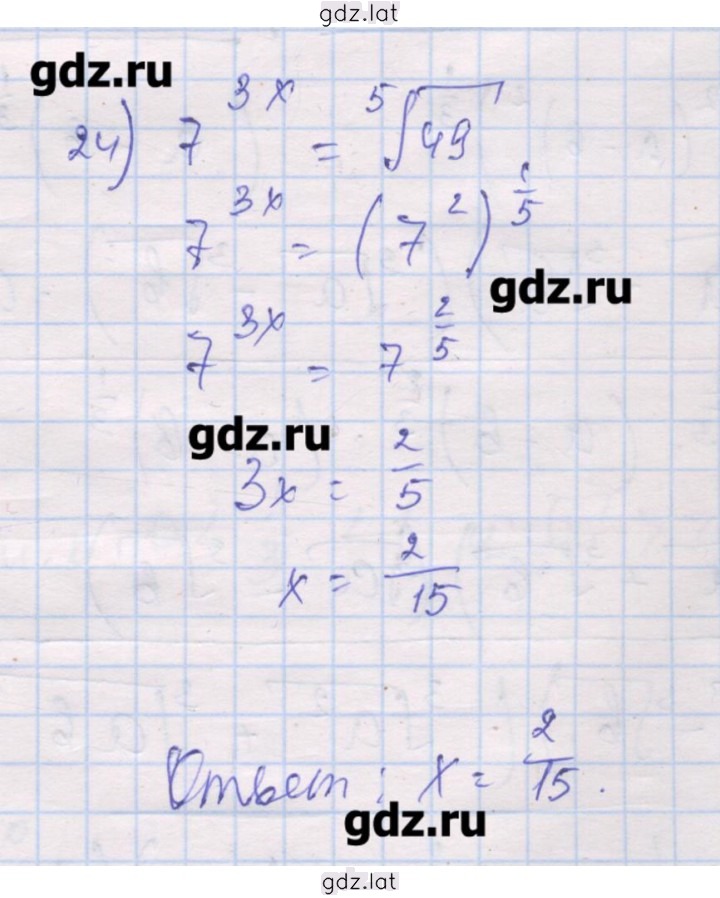 gdz.lat
gdz.ru
24) 7^{3x} = ⁵√49
7^{3x} = (7^2)^{1/5}
gdz.ru
7^{3x} = 7^{2/5}
gdz.ru
3x = 2/5
x = 2/15
Ответ: x = 2/15.
gdz.ru
gdz.lat